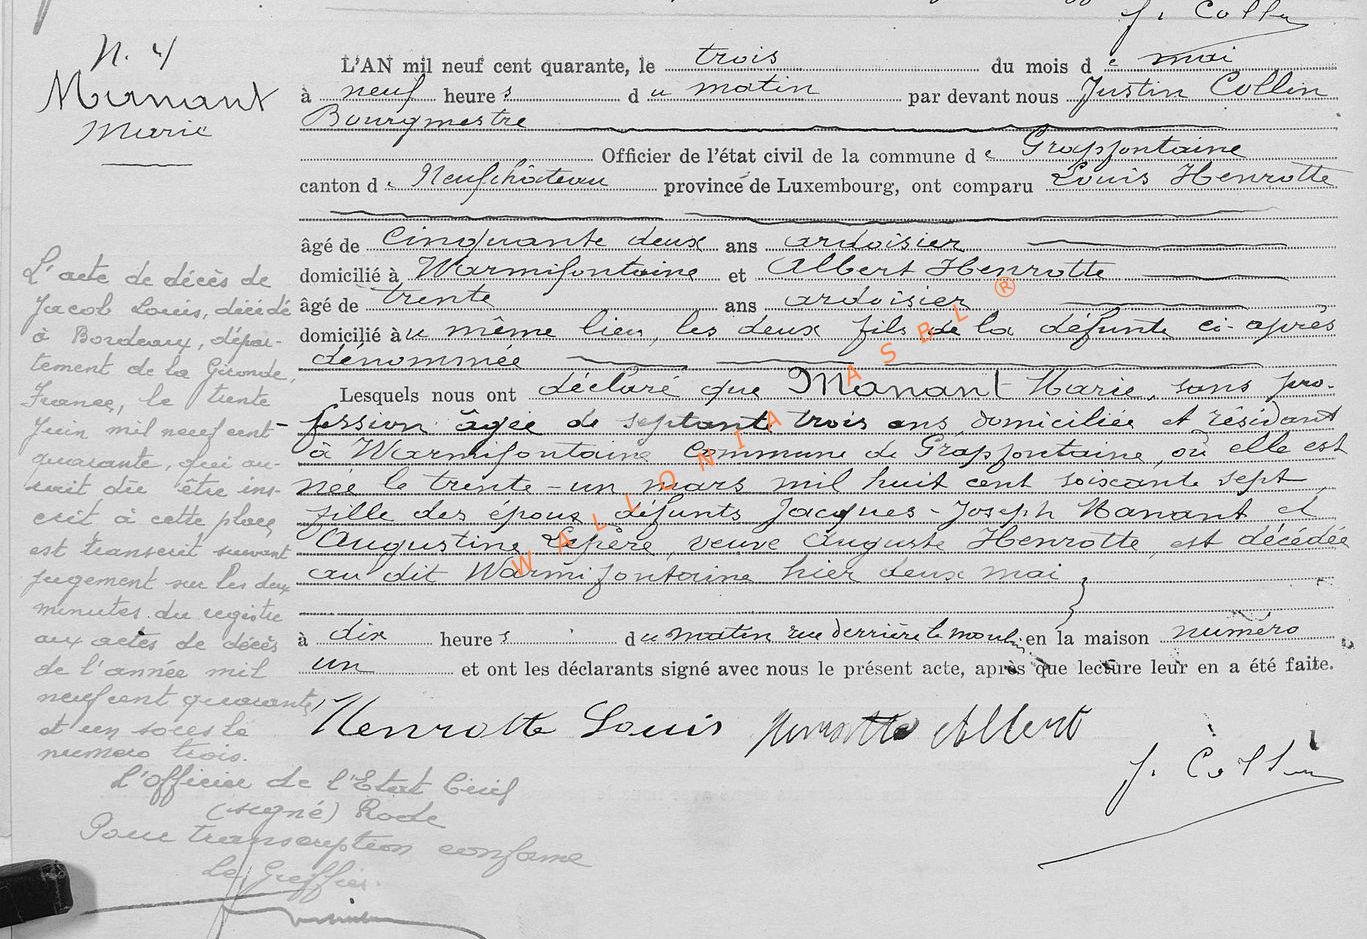 J. Collin
N. 4
Manant
Marie
L'AN mil neuf cent quarante, le trois du mois de mai
à neuf heures du matin par devant nous Justin Collin
Bourgmestre
Officier de l'état civil de la commune de Grapfontaine
canton de Neufchâteau province de Luxembourg, ont comparu Louis Henrotte
âgé de cinquante deux ans ardoisier
domicilié à Warmifontaine et Albert Henrotte
âgé de trente ans ardoisier
domicilié au même lieu, les deux fils de la défunte ci-après
dénommée
Lesquels nous ont déclaré que Manant Marie, sans pro-
fession âgée de septante trois ans, domiciliée et résidant
à Warmifontaine commune de Grapfontaine, où elle est
née le trente-un mars mil huit cent soixante sept
fille des époux défunts Jacques-Joseph Manant et
Augustine Lepère, veuve Auguste Henrotte, est décédée
au dit Warmifontaine hier deux mai
à dix heures du matin rue derrière le moulin en la maison numéro
un et ont les déclarants signé avec nous le présent acte, après que lecture leur en a été faite.
Henrotte Louis Henrotte Albert
J. Collin
L'acte de décès de
Jacob Louis, décédé
à Bordeaux, dépar-
tement de la Gironde,
France, le trente
Juin mil neuf cent-
quarante, qui au-
rait dû être ins-
crit à cette place,
est transcrit suivant
jugement sur les deux
minutes du registre
aux actes de décès
de l'année mil
neuf cent quarante
et un sous le
numéro trois.
L'officier de l'Etat Civil
(signé) Rode
Pour transcription conforme
Le Greffier.
WALLONIA ASBL ®